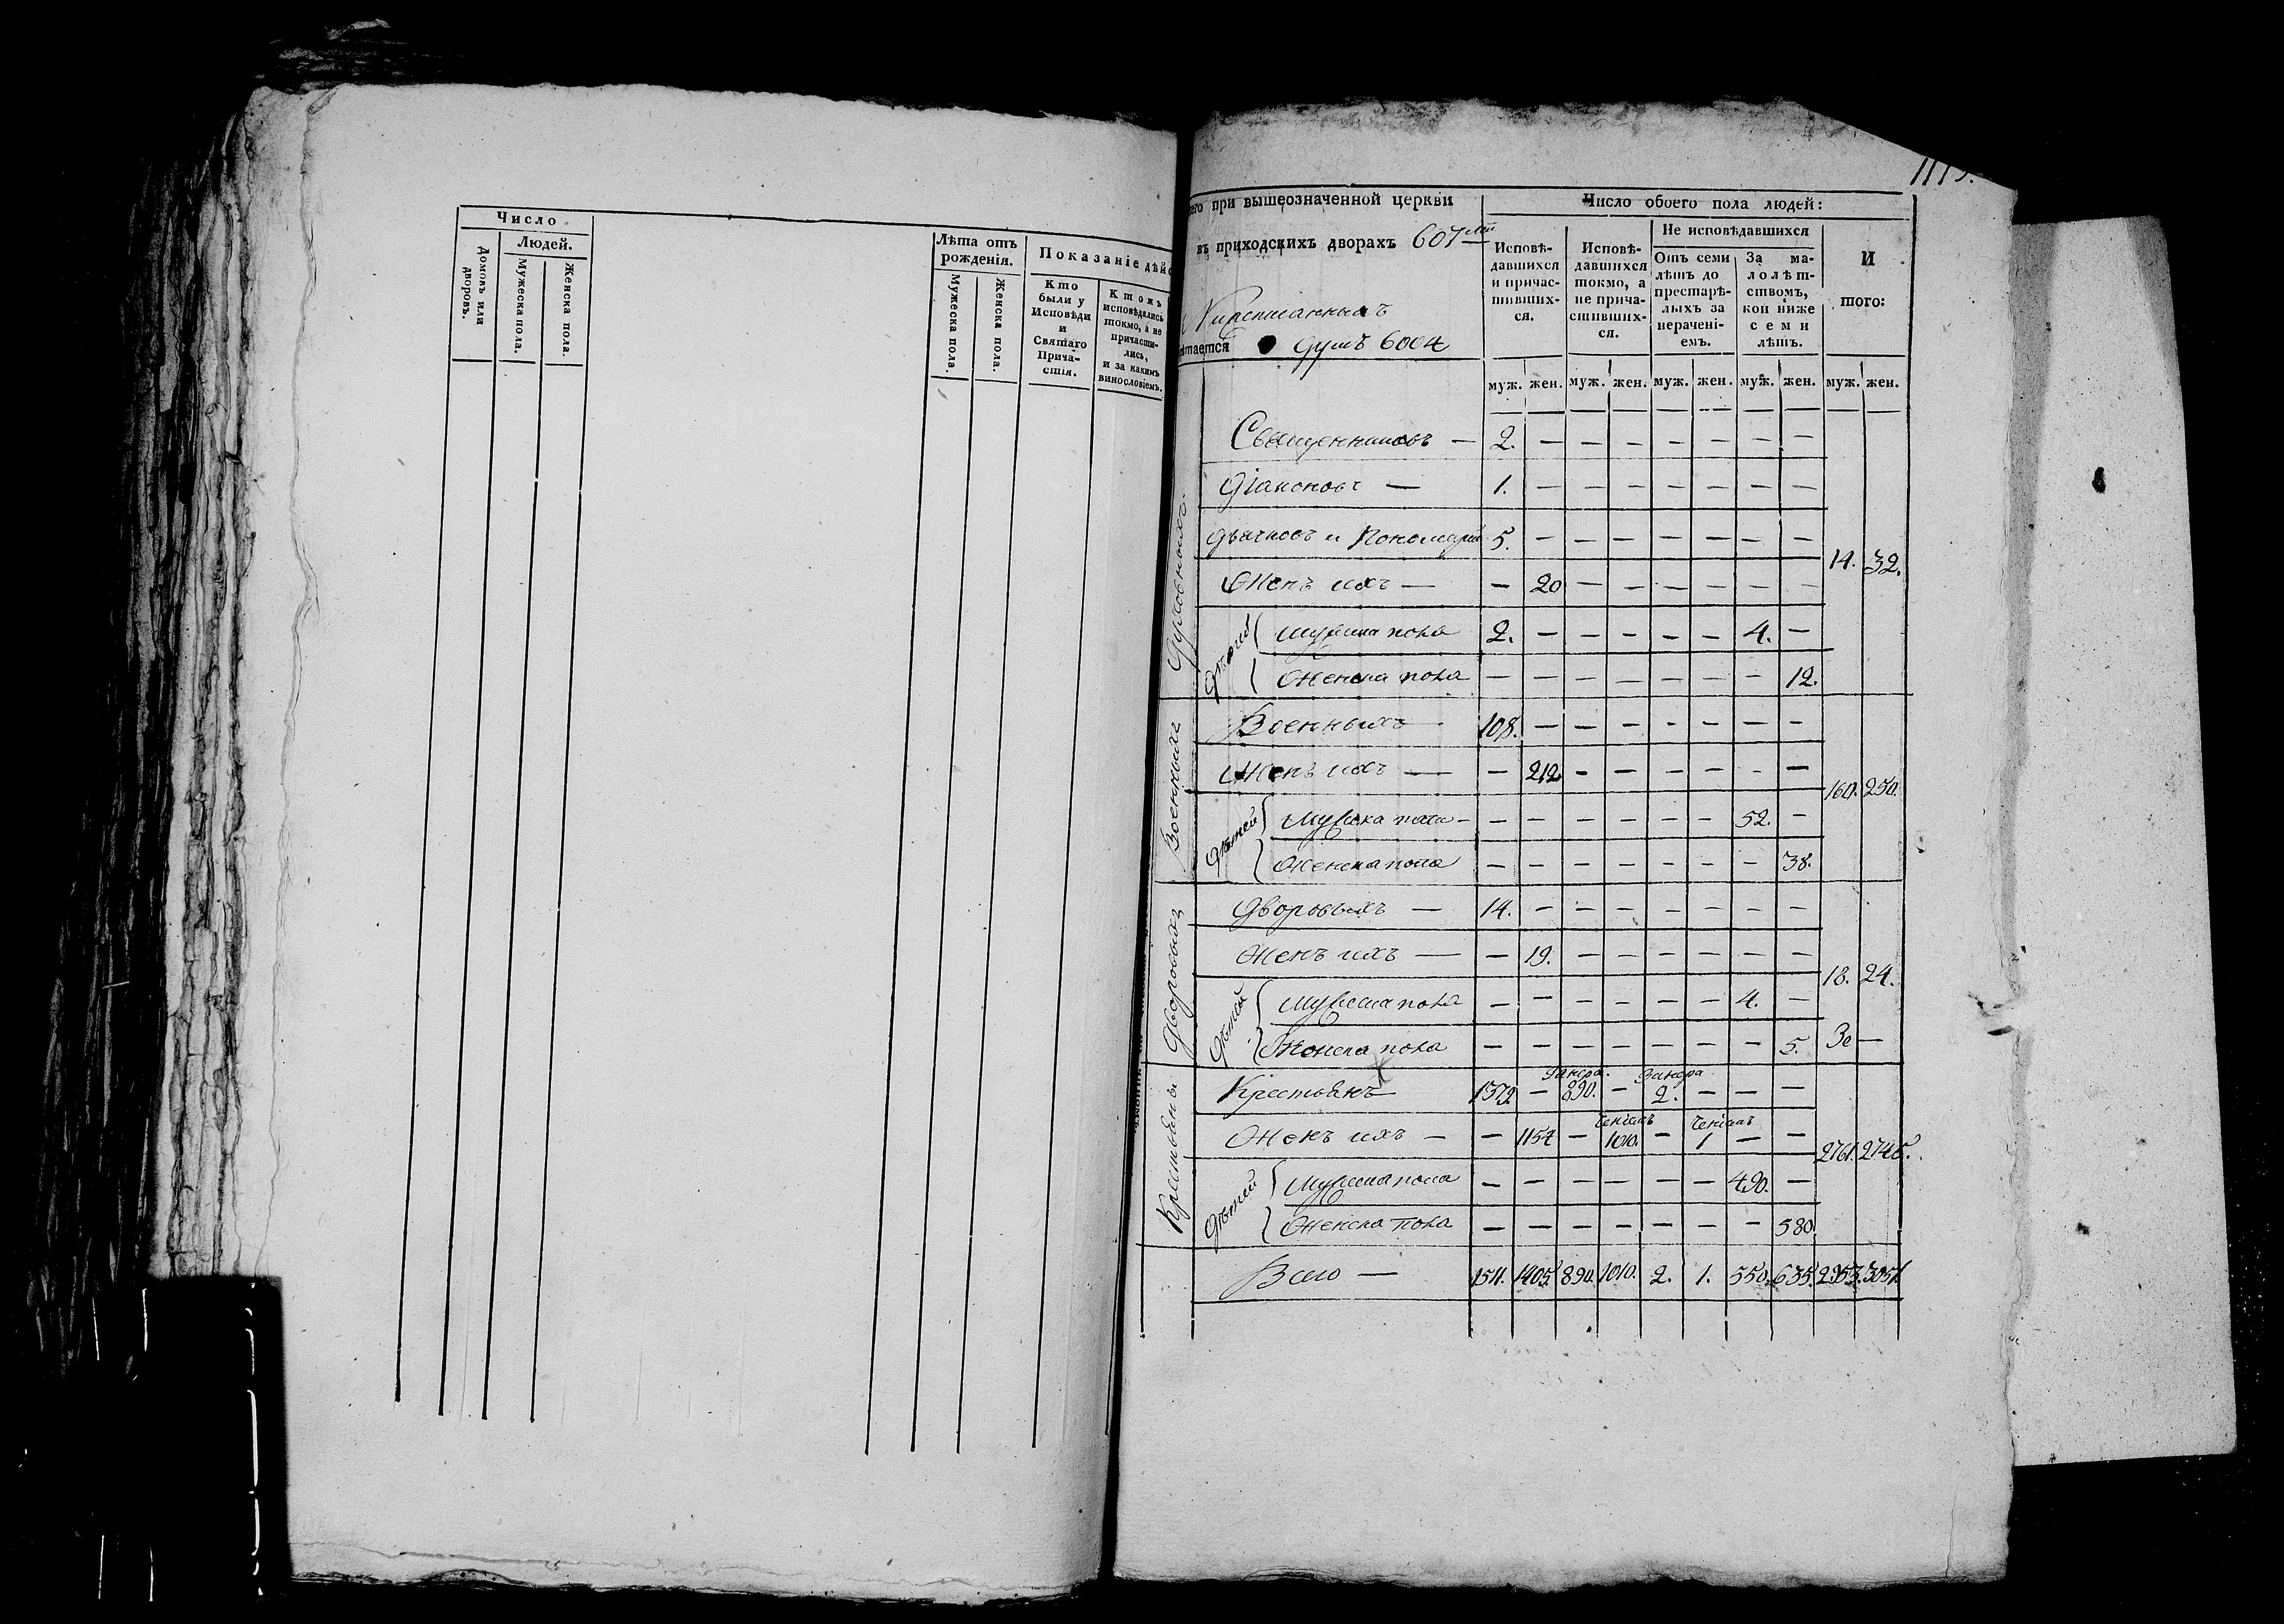 Число
Людей.
Домовъ или дворовъ.
Мужеска пола.
Женска пола.
Лѣта отъ рожденія.
Мужеска пола.
Женска пола.
Показаніе дѣйс
Кто были у Исповѣди и Святаго Причастія.
Ктожъ исповѣдались токмо, а не причастились, и за какимъ винословіемъ.
его при вышеозначенной церкви
въ приходскихъ дворахъ 607
душъ 6004
Число обоего пола людей:
Исповѣдавшихся и причастившихся.
Исповѣдавшихся токмо, а не причастившихся.
Не исповѣдавшихся
Отъ семи лѣтъ до престарѣлыхъ за нераченіемъ.
За малолѣтствомъ, кои ниже семи лѣтъ.
И того:
муж. жен. муж. жен. муж. жен. муж. жен. муж. жен.
Духовныхъ
Священниковъ — 2. — — — — — — —
Діаконовъ — 1. — — — — — — —
Дьячковъ и Пономарей 5. — — — — — — —
Женъ ихъ — — 20 — — — — — —
14. 32.
Дѣтей
Мужеска пола 2. — — — — — 4. —
Женска пола — — — — — — — 12.
Военныхъ
Военныхъ 108. — — — — — — —
Женъ ихъ — — 212 — — — — — —
160. 250.
Дѣтей
Мужеска пола — — — — — — 52. —
Женска пола — — — — — — — 38.
Дворовыхъ
Дворовыхъ — 14. — — — — — — —
Женъ ихъ — — 19. — — — — — —
18. 24.
Дѣтей
Мужеска пола — — — — — — 4. —
Женска пола — — — — — — — 5.
Крестьяны
Крестьянъ 1379. — 890. — 2. — — —
Женъ ихъ — — 1154 — 1010. — 1 — —
2761. 2745.
Дѣтей
Мужеска пола — — — — — — 490. —
Женска пола — — — — — — — 580.
Всего — 1511. 1405. 890. 1010. 2. 1. 550. 635. 2953. 3051.